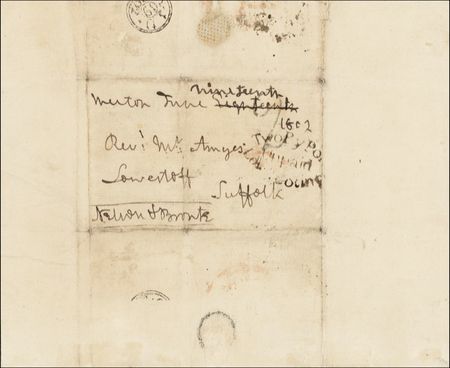 nineteenth
Merton June Eighteenth
1802
Revd. Mr. Amyes
Lowestoff
Suffolk
Nelson & Bronte